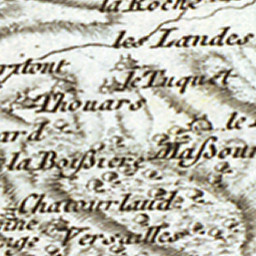 la Roche
les Landes
rytont
le Tuquet
Thouars
le
ard
la Boißiere
Maßour
Chatourlaud
ine
Versailles
nge